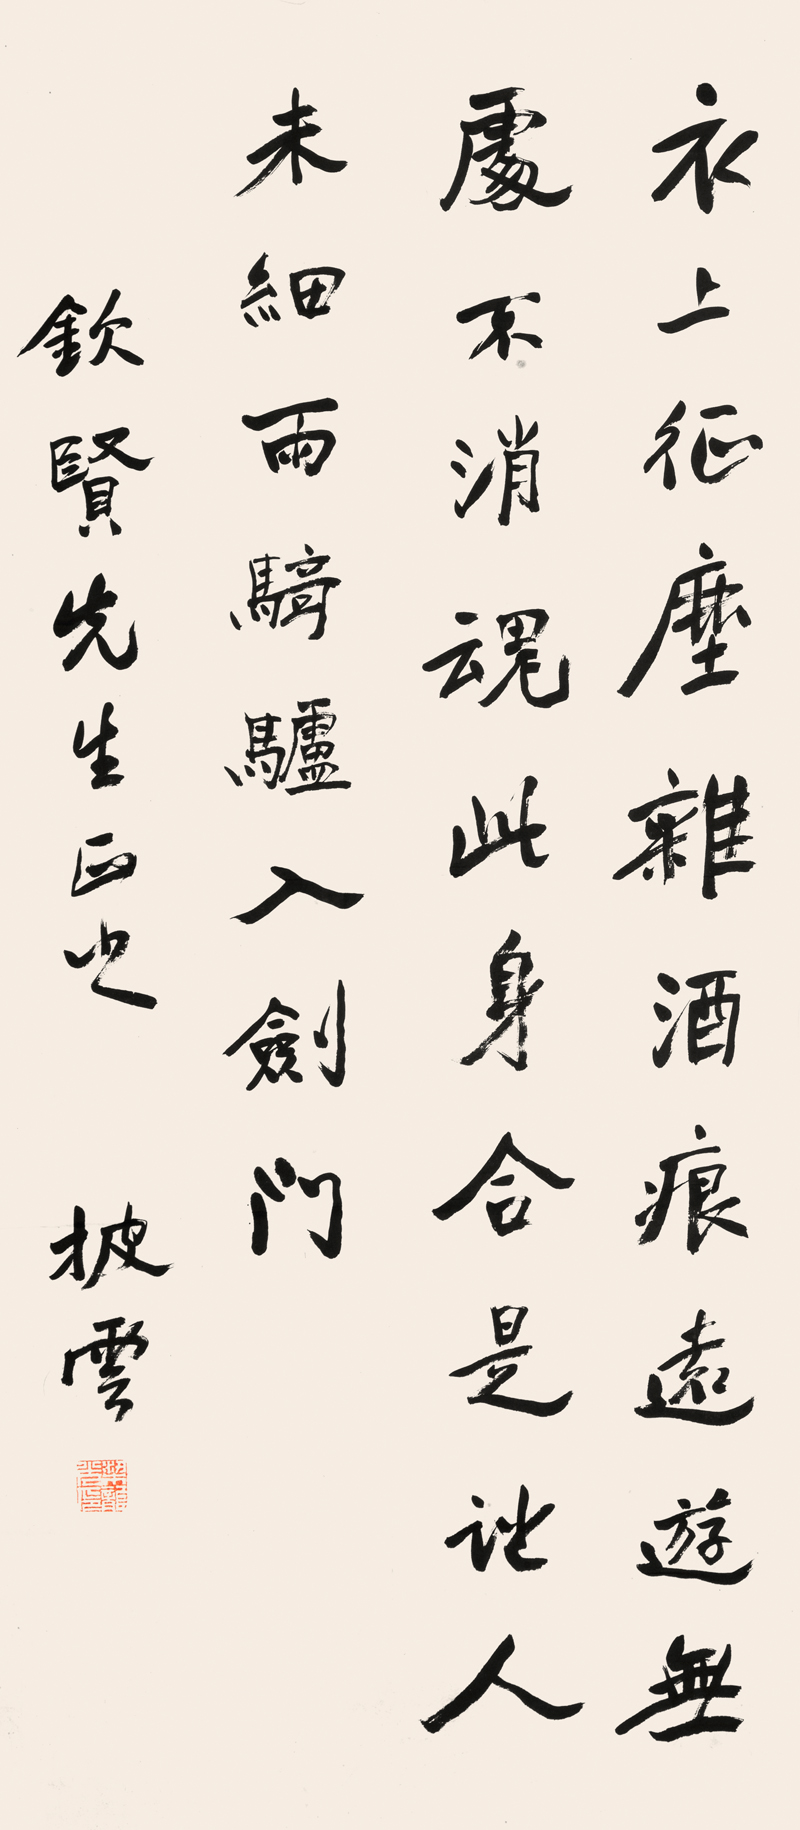 衣上征塵雜酒痕遠遊無
處不消魂此身合是詩人
未細雨騎驢入劍門
欽賢先生正之 披雲